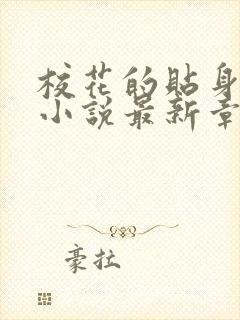 校花的貼身
小說最新章
豪拉